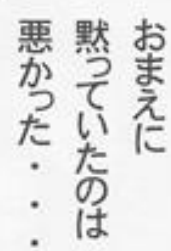 おまえに
黙っていたのは
悪かった・・・